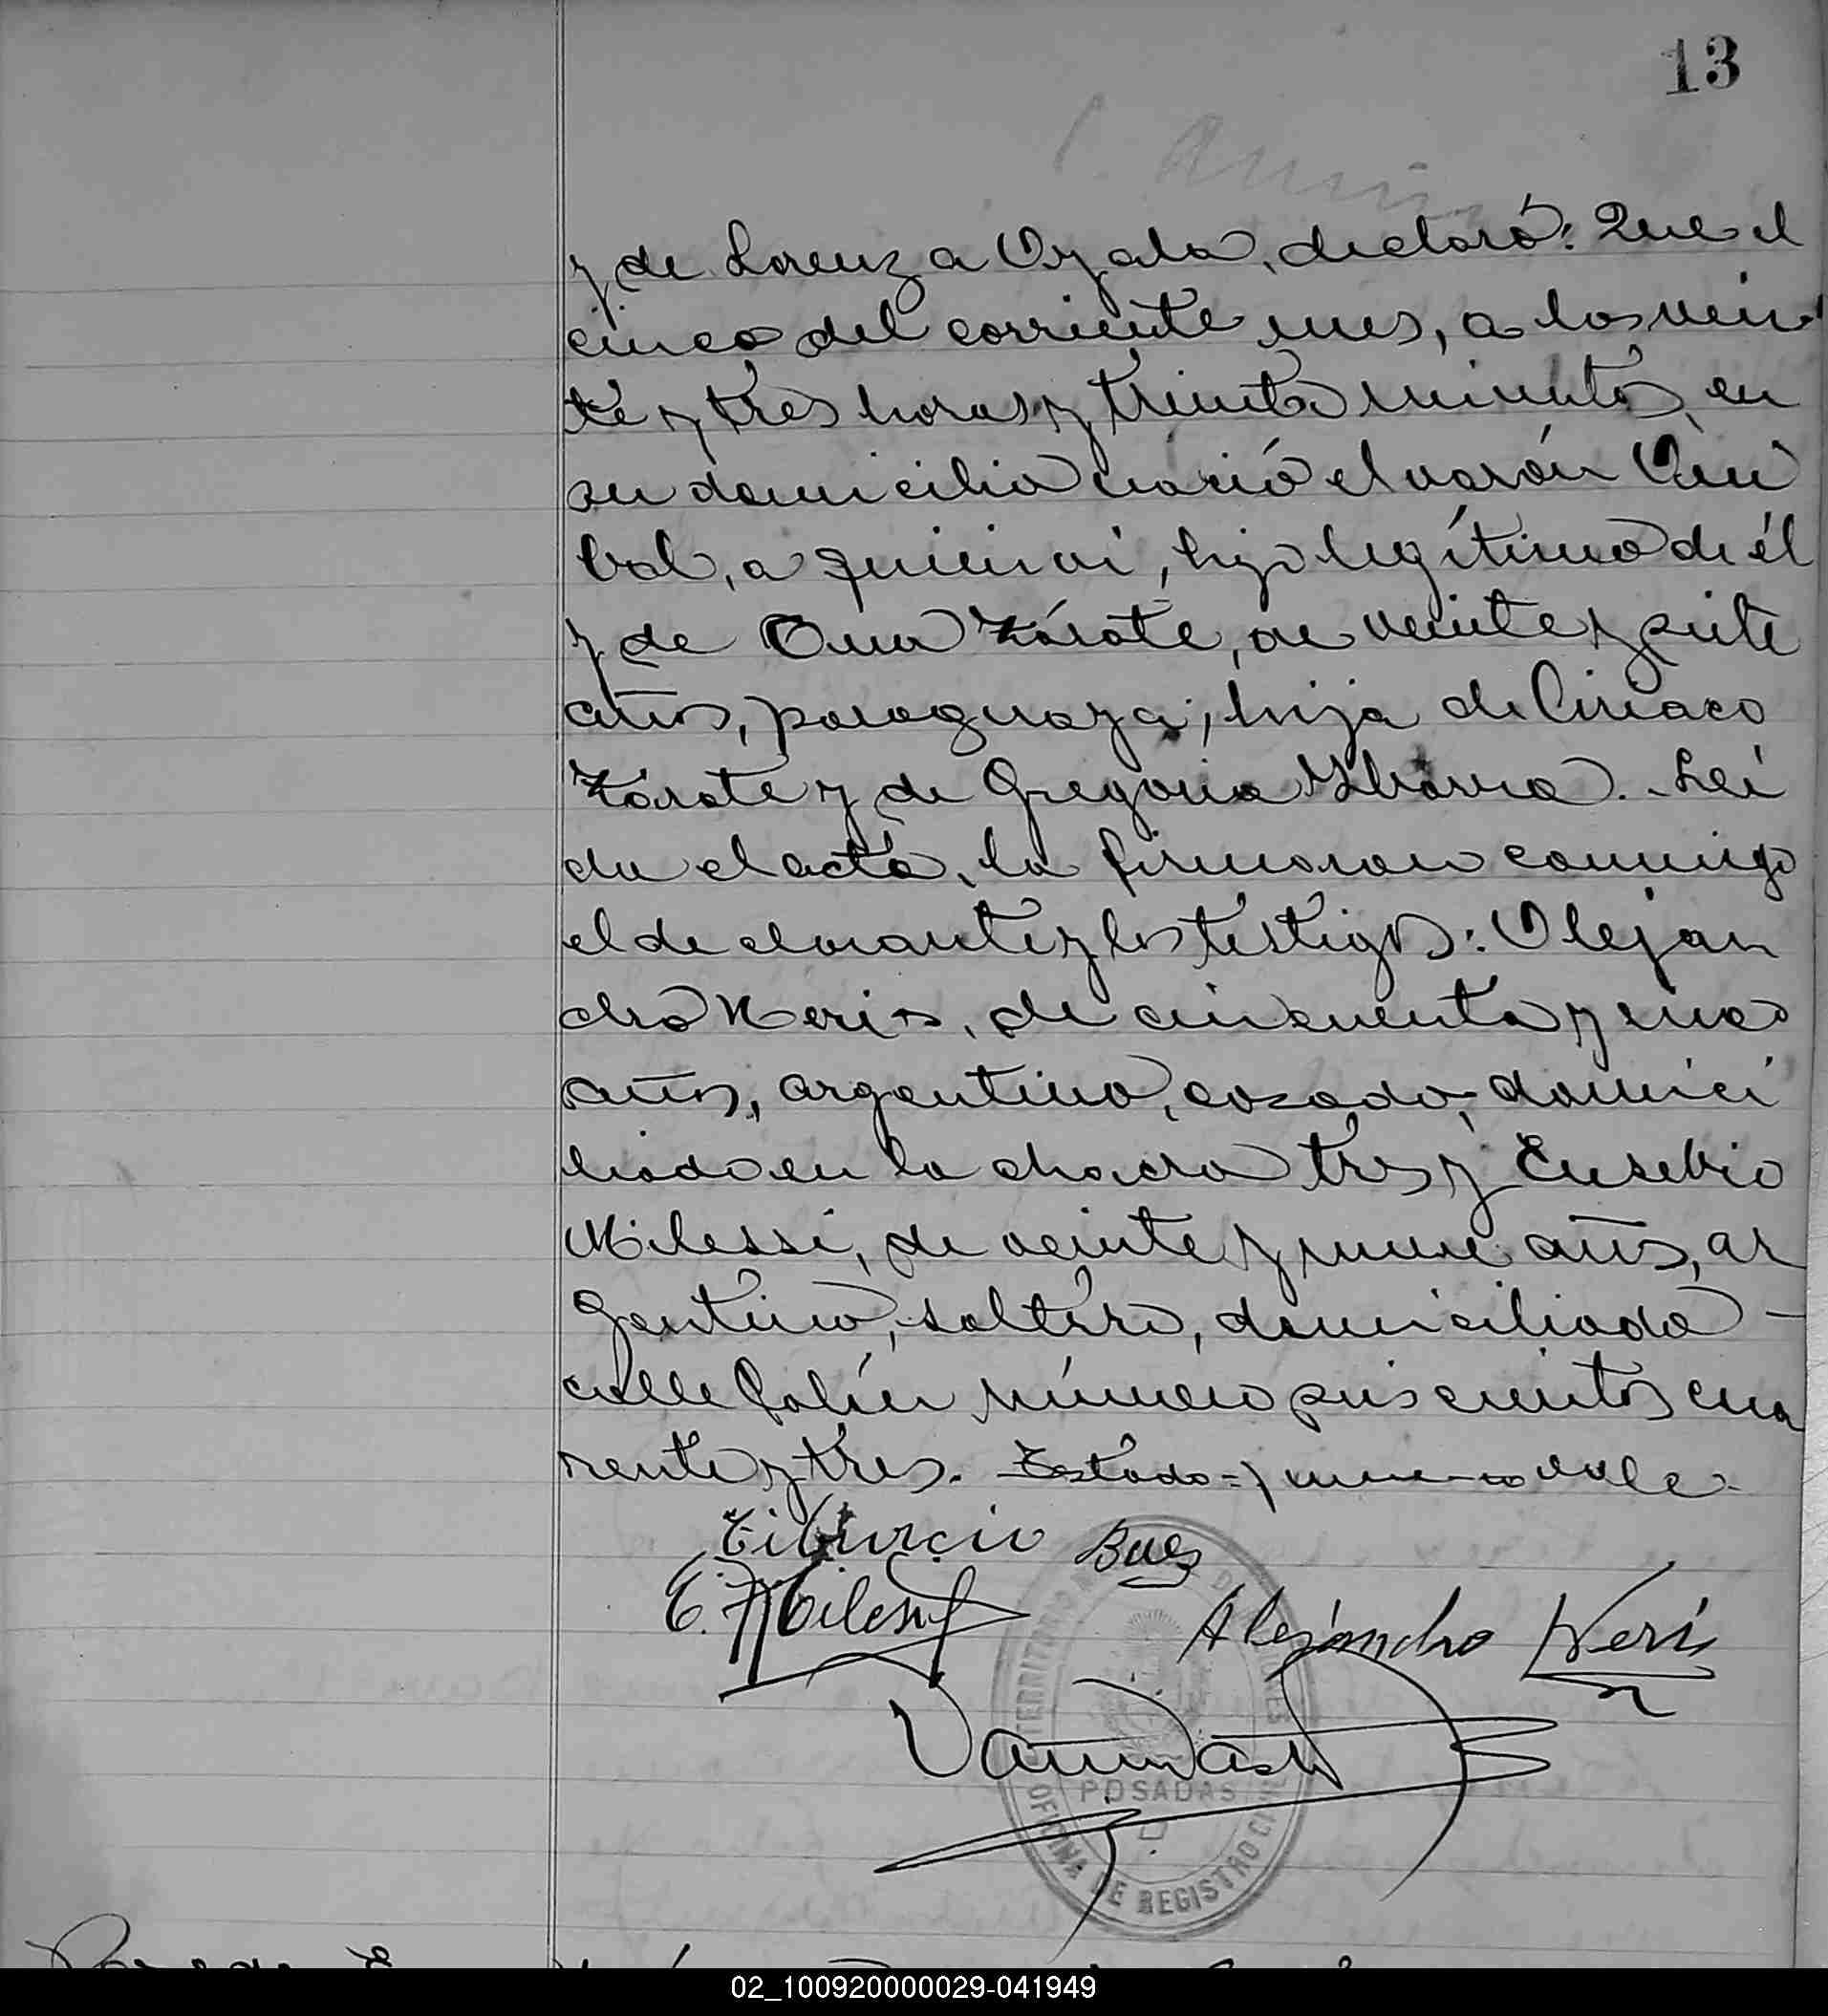 13
y de Lorenza Ayala, declaró: Que el
cinco del corriente mes, a las vein
te y tres horas y treinta minutos, en
su domicilio nació el varón Aní
bal, a quien vi, hijo legítimo de él
y de Ana Zárate, de veinte y siete
años, paraguaya, hija de Ciriaco
Zárate y de Gregoria Ybarra. Leí
da el acta, la firmaron conmigo
el declarante y los testigos: Alejan
dro Neris, de cincuenta y uno
años, argentino, casado, domici
liado en la chacra tres y Eusebio
Milessi, de veinte y nueve años, ar
gentino, soltero, domiciliado -
calle Colón número seiscientos cua
renta y tres. Testado = y nueve = no vale.
Tiburcio Baez
E. Milessi
Alejandro Neris
TERRITORIO DE MISIONES
POSADAS
OFICINA DE REGISTRO CIVIL
02_100920000029-041949